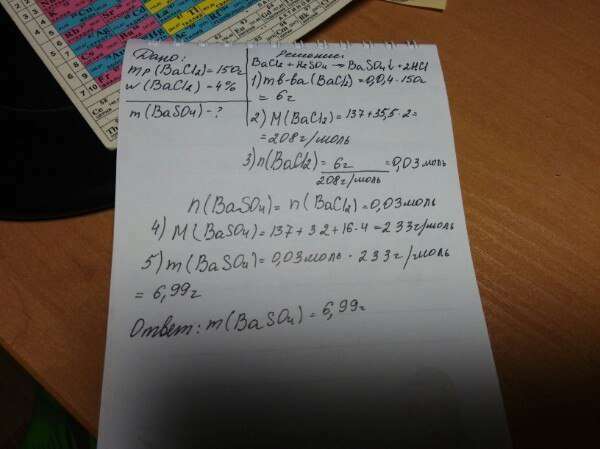 Дано:
mр(BaCl2)=150г
w(BaCl2)-4%
m(BaSO4)-?
Решение:
BaCl2+H2SO4→BaSO4↓+2HCl
1) mв-ва(BaCl2)=0,04·150г
=6г
2) M(BaCl2)=137+35,5·2=
=208г/моль
3) n(BaCl2)=6г/208г/моль=0,03моль
n(BaSO4)=n(BaCl2)=0,03моль
4) M(BaSO4)=137+32+16·4=233г/моль
5) m(BaSO4)=0,03моль·233г/моль
=6,99г
Ответ: m(BaSO4)=6,99г